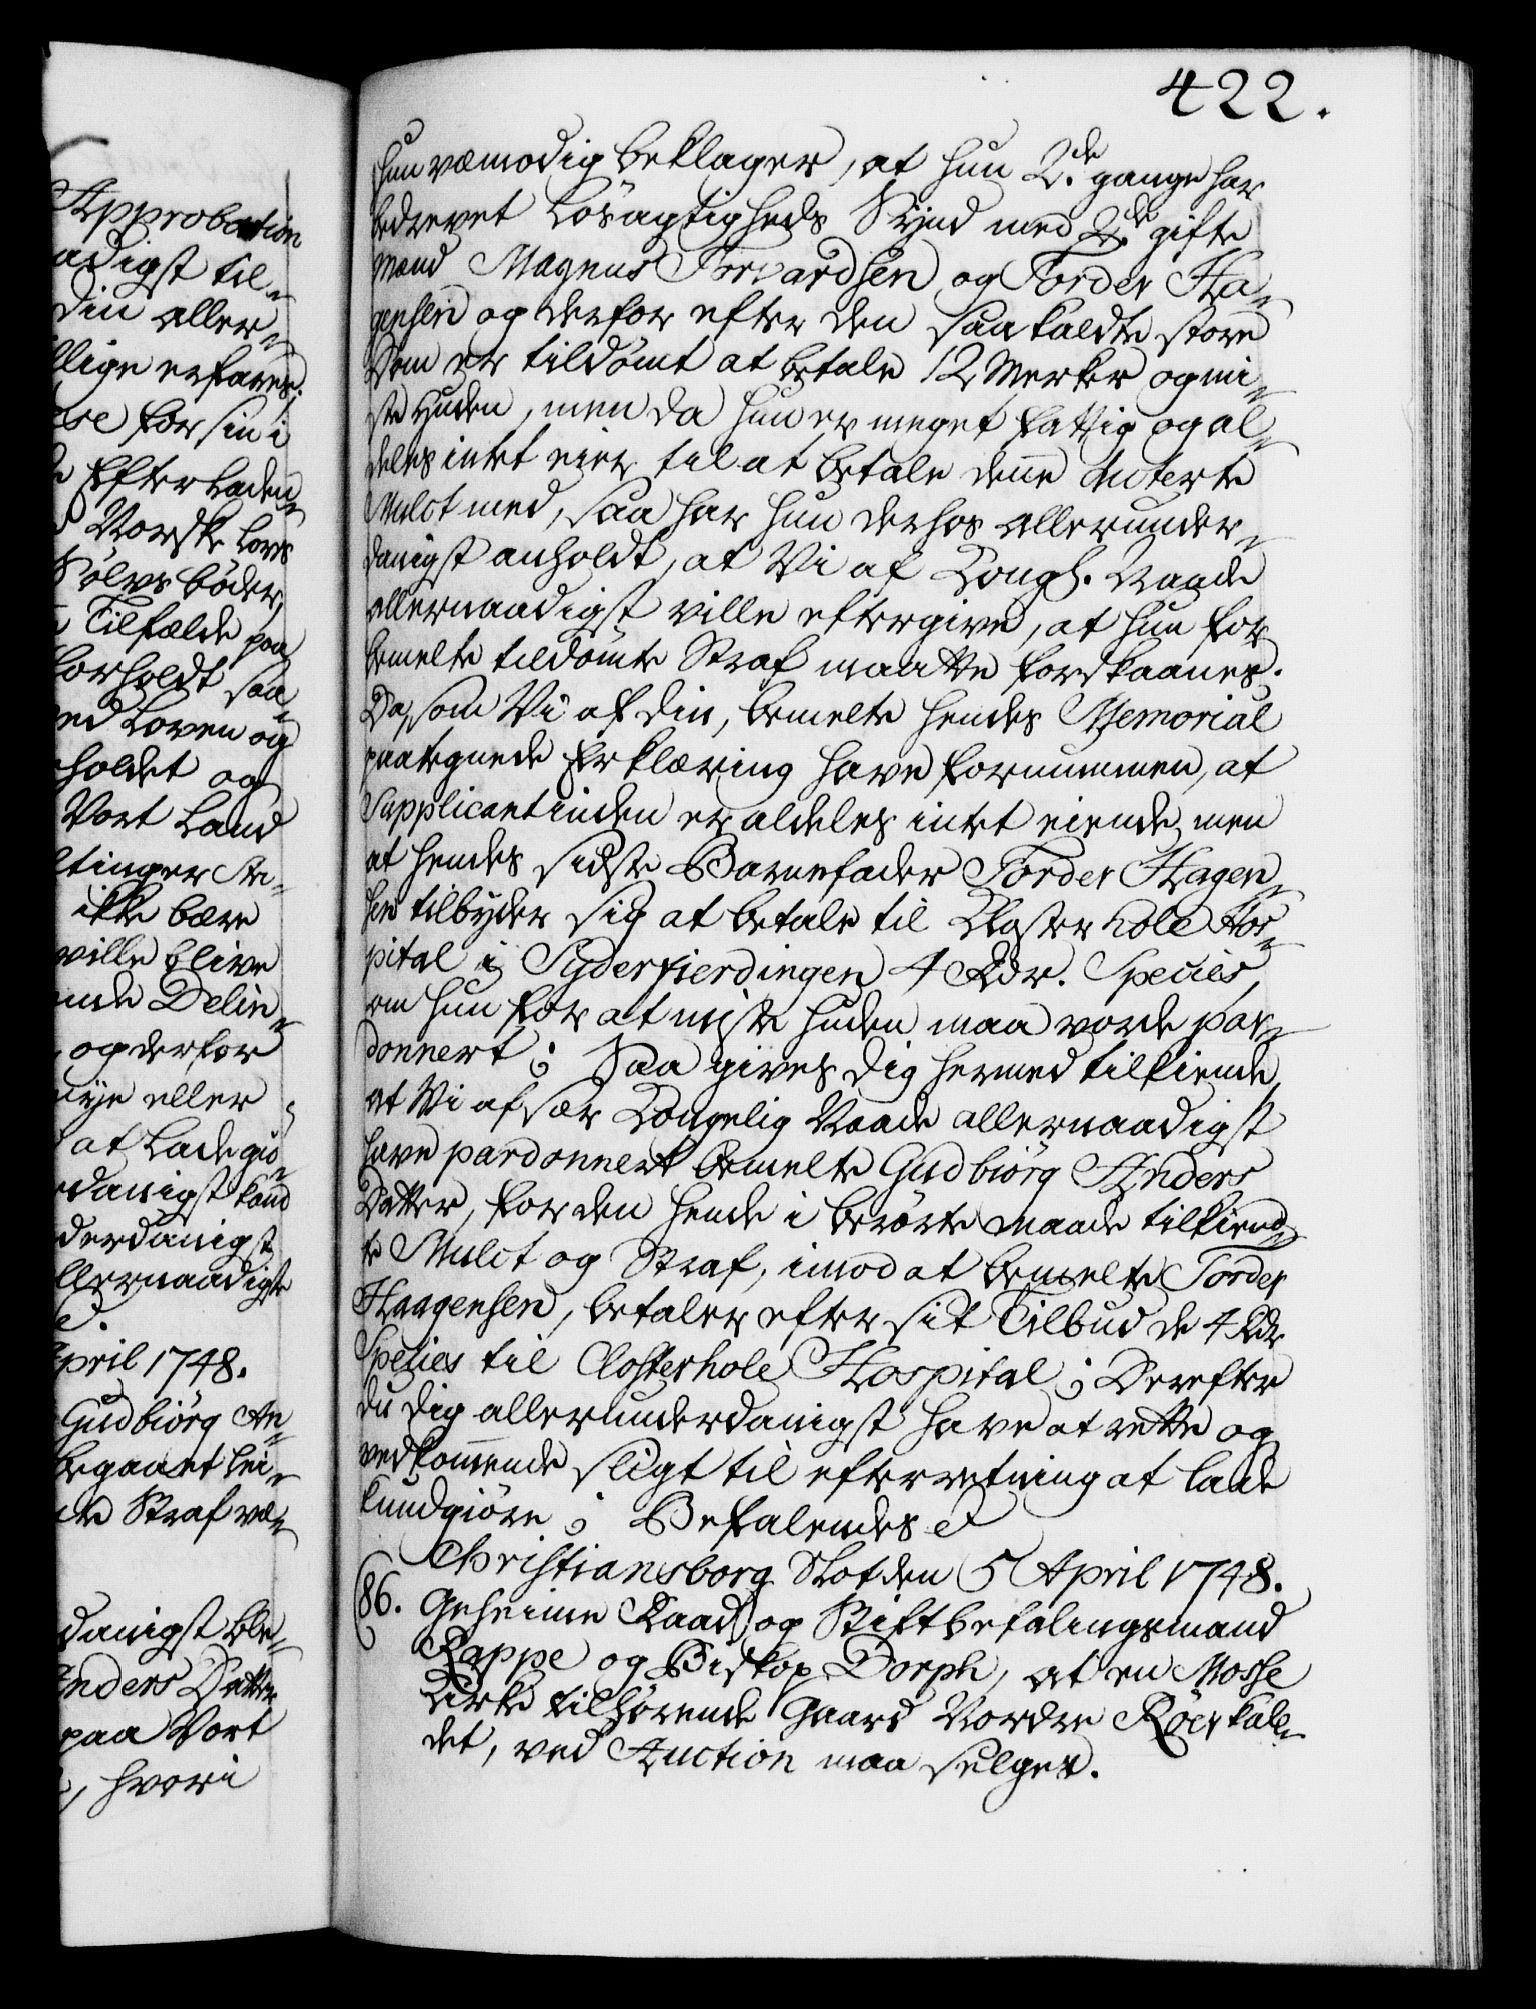 422.
Approbation
adigst til-
Din aller-
llige erfarer,
else for sin i
Efterladen-
Norske Lovs
Sølvs bøder,
Tilfælde paa
forholdt saa-
ed Loven og
holdet og
Vort Land
ltinger
ikke bære
ville blive
ende Delin-
og derfor
nye eller
at lade giø-
danigst kand
derdanigst
llernaadigste
April 1748.
Gudbiörg An-
begaaet Lei-
Straf væ-
danigst ble-
Anders Datter
paa Vort
, hvori
hun vemodig beklager, at hun 2de gange har
bedrevet Løsagtigheds Synd med 2de gifte
Mænd Magnus Torvardsen og Torder Ha-
gensen og derfor efter den saa kaldte store
Dom er tildømt at betale 12 Merker og mi-
ste Huden, men da hun er meget fattig og al-
deles intet eier til at betale denne dicterte
Mulct med, saa har hun derhos allerunder-
danigst anholdt, at Vi af Kongl. Naade
allernaadigst ville eftergive, at hun for
bemelte tildømte Straf maatte forskaanes.
Da, som Vi af din, bemelte hendes Memorial
paategnede Erklæring have fornummen, at
Supplicantinden er aldeles intet eiende, men
at hendes sidste Barnefader Torder Hagen-
sen tilbyder sig at betale til Klosterhole Hos-
pital i Syderfierdingen 4 Rdr. Species,
om hun for at miste huden maa vorde par-
donnert; Saa gives dig hermed tilkiende,
at Vi af sær Kongelig Naade allernaadigst
have pardonnert bemelte Gudbiörg Anders
Datter, for den hende i berørte maade tilkiend-
te Mulct og Straf, imod at bemelte Torder
Haagensen, betaler efter sit Tilbud de 4 Rdr
Species til Closterhole Hospital; Derefter
du dig allerunderdanigst have at rette og
vedkommende sligt til efterretning at lade
kundgiøre; Befalendes &
Christiansborg Slot den 5 April 1748.
86. Geheime Raad og Stiftbefalingsmand
Rappe og Biskop Dorph, at en Mosse
Kirke tilhørende Gaard Nordre Röer kal-
det, ved Auction maa selges.